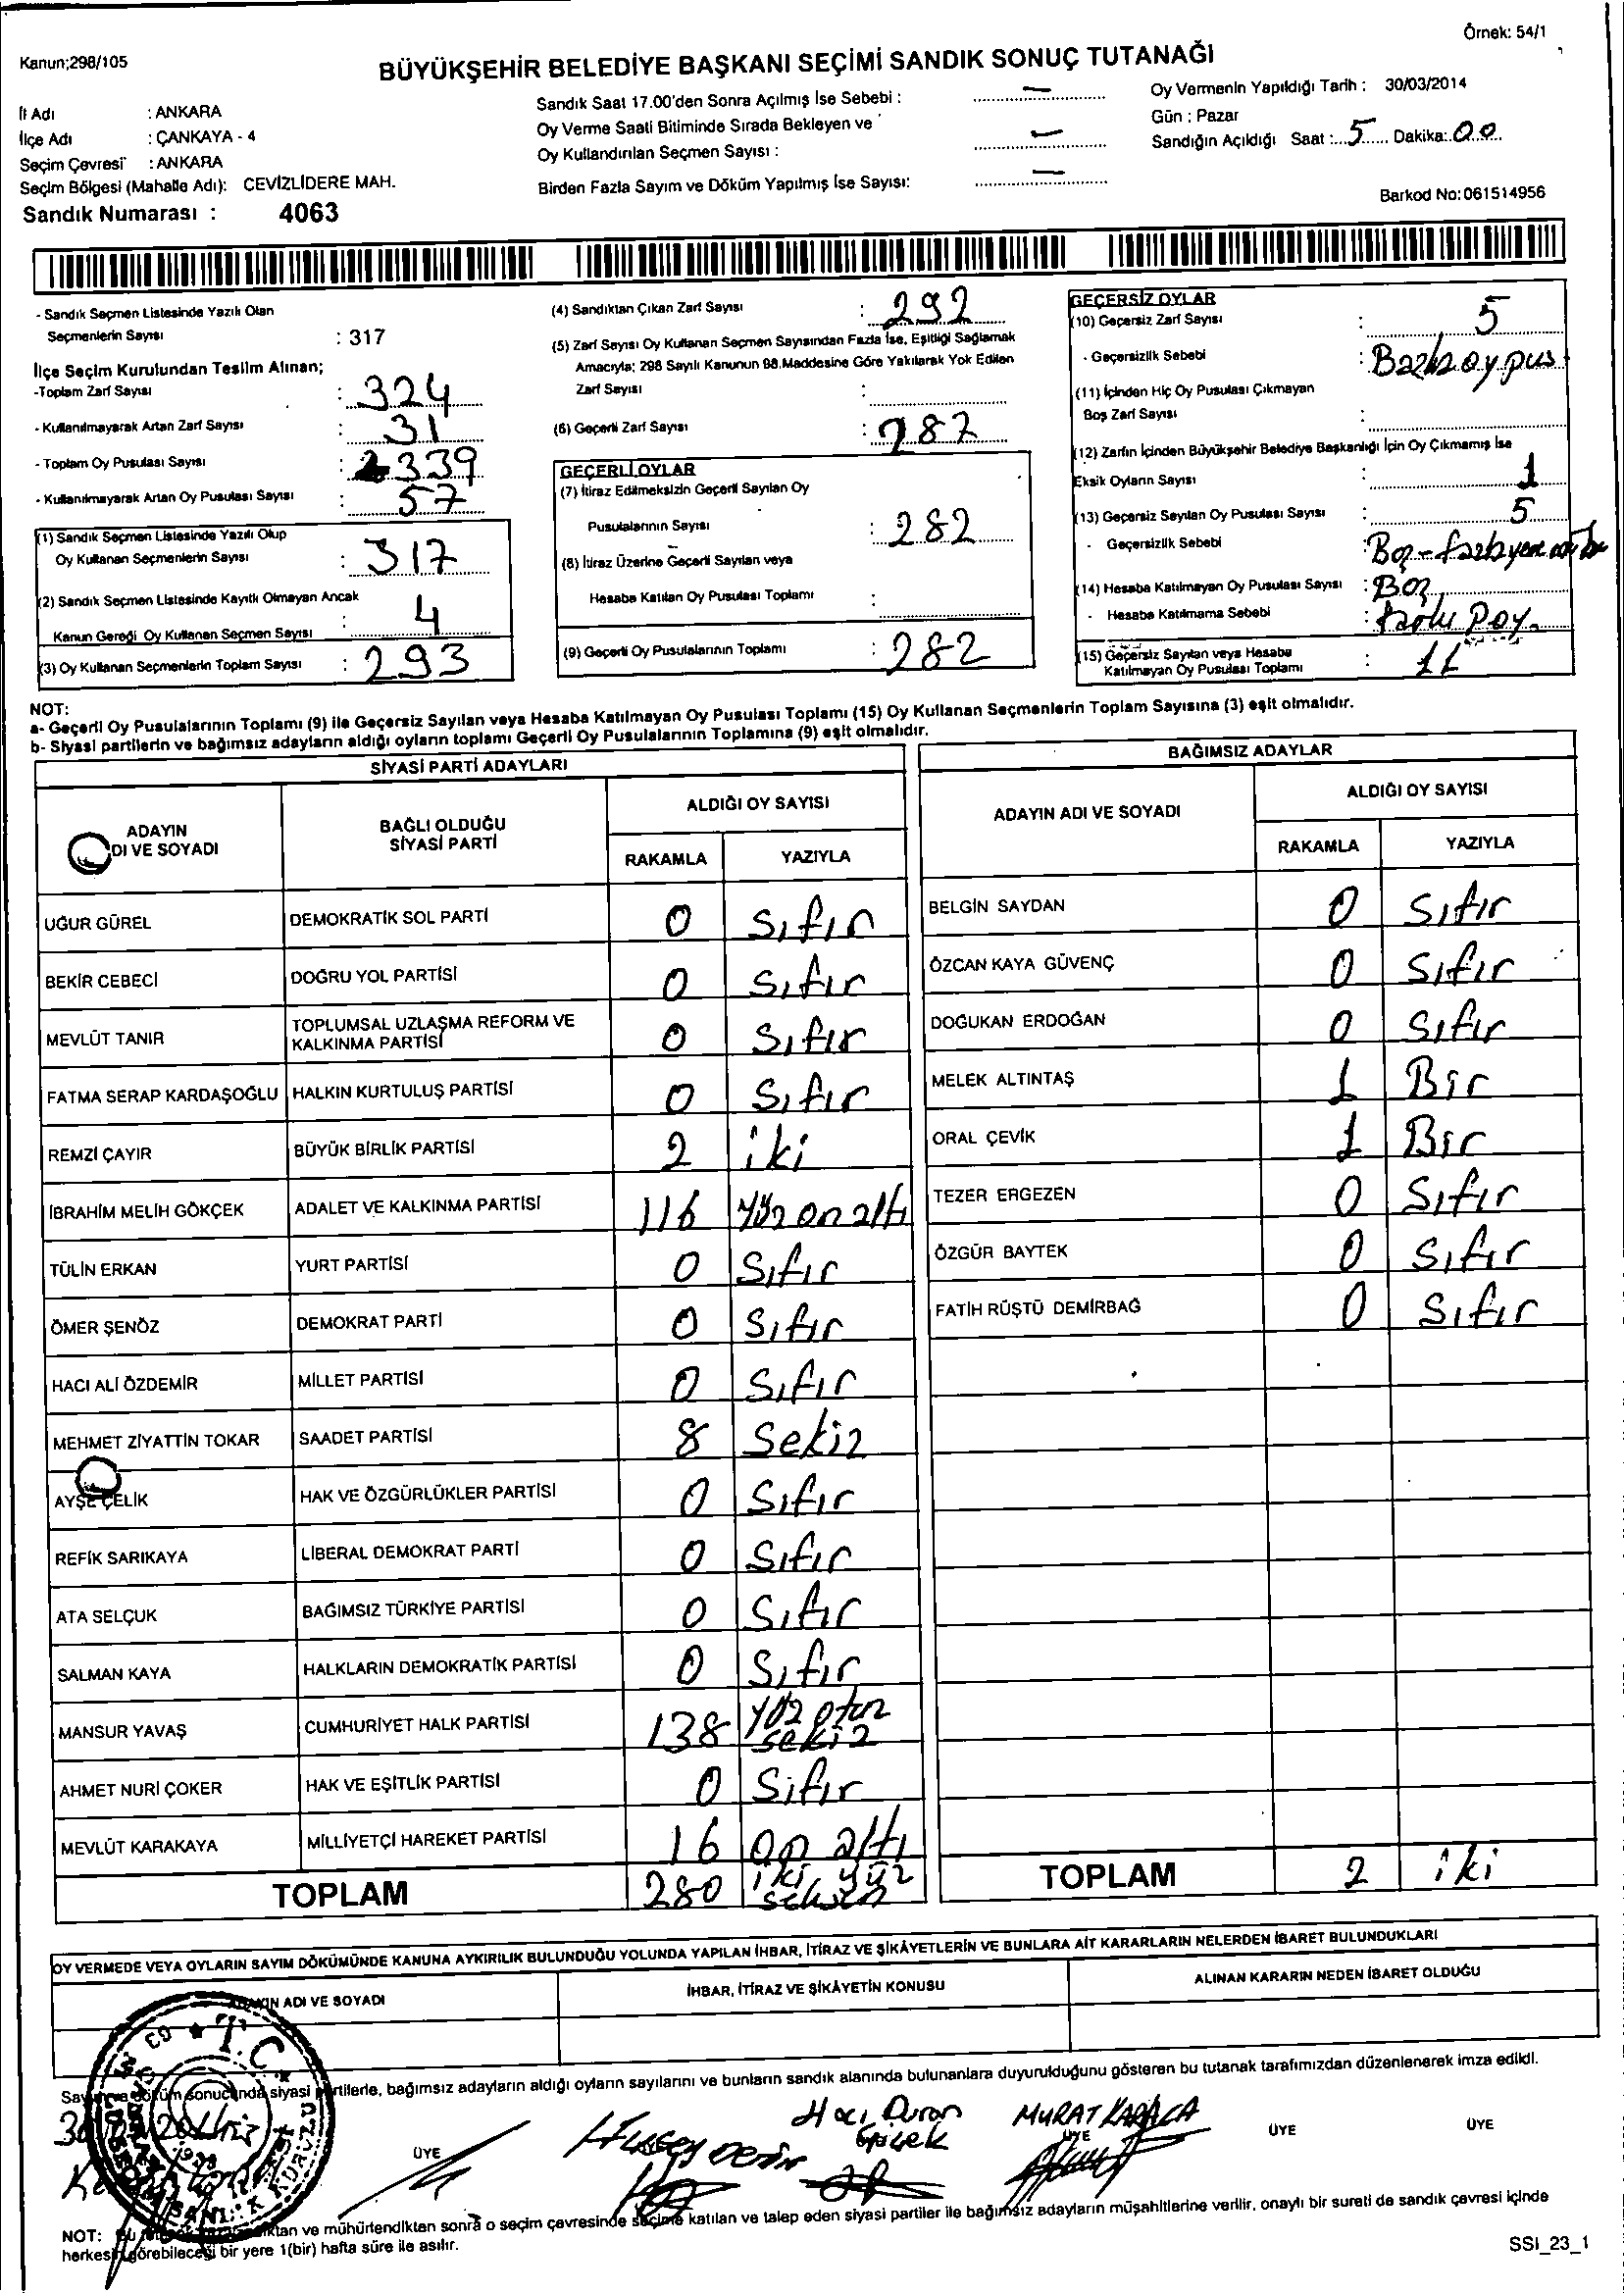 Örnek: 54/1
Kanun;298/105
BÜYÜKŞEHİR BELEDİYE BAŞKANI SEÇİMİ SANDIK SONUÇ TUTANAĞI
İl Adı : ANKARA
İlçe Adı : ÇANKAYA - 4
Seçim Çevresi : ANKARA
Seçim Bölgesi (Mahalle Adı): CEVİZLİDERE MAH.
Sandık Numarası : 4063
Sandık Saat 17.00'den Sonra Açılmış İse Sebebi : —
Oy Verme Saati Bitiminde Sırada Bekleyen ve
Oy Kullandırılan Seçmen Sayısı : —
Birden Fazla Sayım ve Döküm Yapılmış İse Sayısı: —
Oy Vermenin Yapıldığı Tarih : 30/03/2014
Gün : Pazar
Sandığın Açıldığı Saat : 5 Dakika: 00
Barkod No:061514956
- Sandık Seçmen Listesinde Yazılı Olan
Seçmenlerin Sayısı : 317
İlçe Seçim Kurulundan Teslim Alınan;
-Toplam Zarf Sayısı : 324
- Kullanılmayarak Artan Zarf Sayısı : 31
- Toplam Oy Pusulası Sayısı : 339
- Kullanılmayarak Artan Oy Pusulası Sayısı : 57
(1) Sandık Seçmen Listesinde Yazılı Olup
Oy Kullanan Seçmenlerin Sayısı : 317
(2) Sandık Seçmen Listesinde Kayıtlı Olmayan Ancak
Kanun Gereği Oy Kullanan Seçmen Sayısı : 4
(3) Oy Kullanan Seçmenlerin Toplam Sayısı : 293
(4) Sandıktan Çıkan Zarf Sayısı : 292
(5) Zarf Sayısı Oy Kullanan Seçmen Sayısından Fazla İse, Eşitliği Sağlamak
Amacıyla; 298 Sayılı Kanunun 98.Maddesine Göre Yakılarak Yok Edilen
Zarf Sayısı :
(6) Geçerli Zarf Sayısı : 287
GEÇERLİ OYLAR
(7) İtiraz Edilmeksizin Geçerli Sayılan Oy
Pusulalarının Sayısı : 282
(8) İtiraz Üzerine Geçerli Sayılan veya
Hesaba Katılan Oy Pusulası Toplamı :
(9) Geçerli Oy Pusulalarının Toplamı : 282
GEÇERSİZ OYLAR
(10) Geçersiz Zarf Sayısı : 5
- Geçersizlik Sebebi :
(11) İçinden Hiç Oy Pusulası Çıkmayan
Boş Zarf Sayısı :
(12) Zarfın İçinden Büyükşehir Belediye Başkanlığı İçin Oy Çıkmamış İse
Eksik Oyların Sayısı : 1
(13) Geçersiz Sayılan Oy Pusulası Sayısı : 5
- Geçersizlik Sebebi : Boş -
(14) Hesaba Katılmayan Oy Pusulası Sayısı : Boş
- Hesaba Katılmama Sebebi :
(15) Geçersiz Sayılan veya Hesaba
Katılmayan Oy Pusulası Toplamı : 11
NOT:
a- Geçerli Oy Pusulalarının Toplamı (9) ile Geçersiz Sayılan veya Hesaba Katılmayan Oy Pusulası Toplamı (15) Oy Kullanan Seçmenlerin Toplam Sayısına (3) eşit olmalıdır.
b- Siyasi partilerin ve bağımsız adayların aldığı oyların toplamı Geçerli Oy Pusulalarının Toplamına (9) eşit olmalıdır.
SİYASİ PARTİ ADAYLARI
ADAYIN
DI VE SOYADI
BAĞLI OLDUĞU
SİYASİ PARTİ
ALDIĞI OY SAYISI
RAKAMLA YAZIYLA
UĞUR GÜREL DEMOKRATİK SOL PARTİ 0 Sıfır
BEKİR CEBECİ DOĞRU YOL PARTİSİ 0 Sıfır
MEVLÜT TANIR TOPLUMSAL UZLAŞMA REFORM VE KALKINMA PARTİSİ 0 Sıfır
FATMA SERAP KARDAŞOĞLU HALKIN KURTULUŞ PARTİSİ 0 Sıfır
REMZİ ÇAYIR BÜYÜK BİRLİK PARTİSİ 2 iki
İBRAHİM MELİH GÖKÇEK ADALET VE KALKINMA PARTİSİ 116 Yüz on altı
TÜLİN ERKAN YURT PARTİSİ 0 Sıfır
ÖMER ŞENÖZ DEMOKRAT PARTİ 0 Sıfır
HACI ALİ ÖZDEMİR MİLLET PARTİSİ 0 Sıfır
MEHMET ZİYATTİN TOKAR SAADET PARTİSİ 8 Sekiz
AYŞE ÇELİK HAK VE ÖZGÜRLÜKLER PARTİSİ 0 Sıfır
REFİK SARIKAYA LİBERAL DEMOKRAT PARTİ 0 Sıfır
ATA SELÇUK BAĞIMSIZ TÜRKİYE PARTİSİ 0 Sıfır
SALMAN KAYA HALKLARIN DEMOKRATİK PARTİSİ 0 Sıfır
MANSUR YAVAŞ CUMHURİYET HALK PARTİSİ 138 Yüz otuz sekiz
AHMET NURİ ÇOKER HAK VE EŞİTLİK PARTİSİ 0 Sıfır
MEVLÜT KARAKAYA MİLLİYETÇİ HAREKET PARTİSİ 16 on altı
TOPLAM 280 iki yüz seksen
BAĞIMSIZ ADAYLAR
ADAYIN ADI VE SOYADI
ALDIĞI OY SAYISI
RAKAMLA YAZIYLA
BELGİN SAYDAN 0 Sıfır
ÖZCAN KAYA GÜVENÇ 0 Sıfır
DOĞUKAN ERDOĞAN 0 Sıfır
MELEK ALTINTAŞ 1 Bir
ORAL ÇEVİK 1 Bir
TEZER ERGEZEN 0 Sıfır
ÖZGÜR BAYTEK 0 Sıfır
FATİH RÜŞTÜ DEMİRBAĞ 0 Sıfır
TOPLAM 2 iki
OY VERMEDE VEYA OYLARIN SAYIM DÖKÜMÜNDE KANUNA AYKIRILIK BULUNDUĞU YOLUNDA YAPILAN İHBAR, İTİRAZ VE ŞİKÂYETLERİN VE BUNLARA AİT KARARLARIN NELERDEN İBARET BULUNDUKLARI
ADI VE SOYADI
İHBAR, İTİRAZ VE ŞİKÂYETİN KONUSU
ALINAN KARARIN NEDEN İBARET OLDUĞU
T.C.
sonucunda siyasi partilerle, bağımsız adayların aldığı oyların sayılarını ve bunların sandık alanında bulunanlara duyurulduğunu gösteren bu tutanak tarafımızdan düzenlenerek imza edildi.
Hacı Duran MURAT KARACA
ÜYE ÜYE ÜYE ÜYE
NOT: ve mühürlendikten sonra o seçim çevresinde seçime katılan ve talep eden siyasi partiler ile bağımsız adayların müşahitlerine verilir, onaylı bir sureti de sandık çevresi içinde
herkesin görebileceği bir yere 1(bir) hafta süre ile asılır.
SSI_23_1